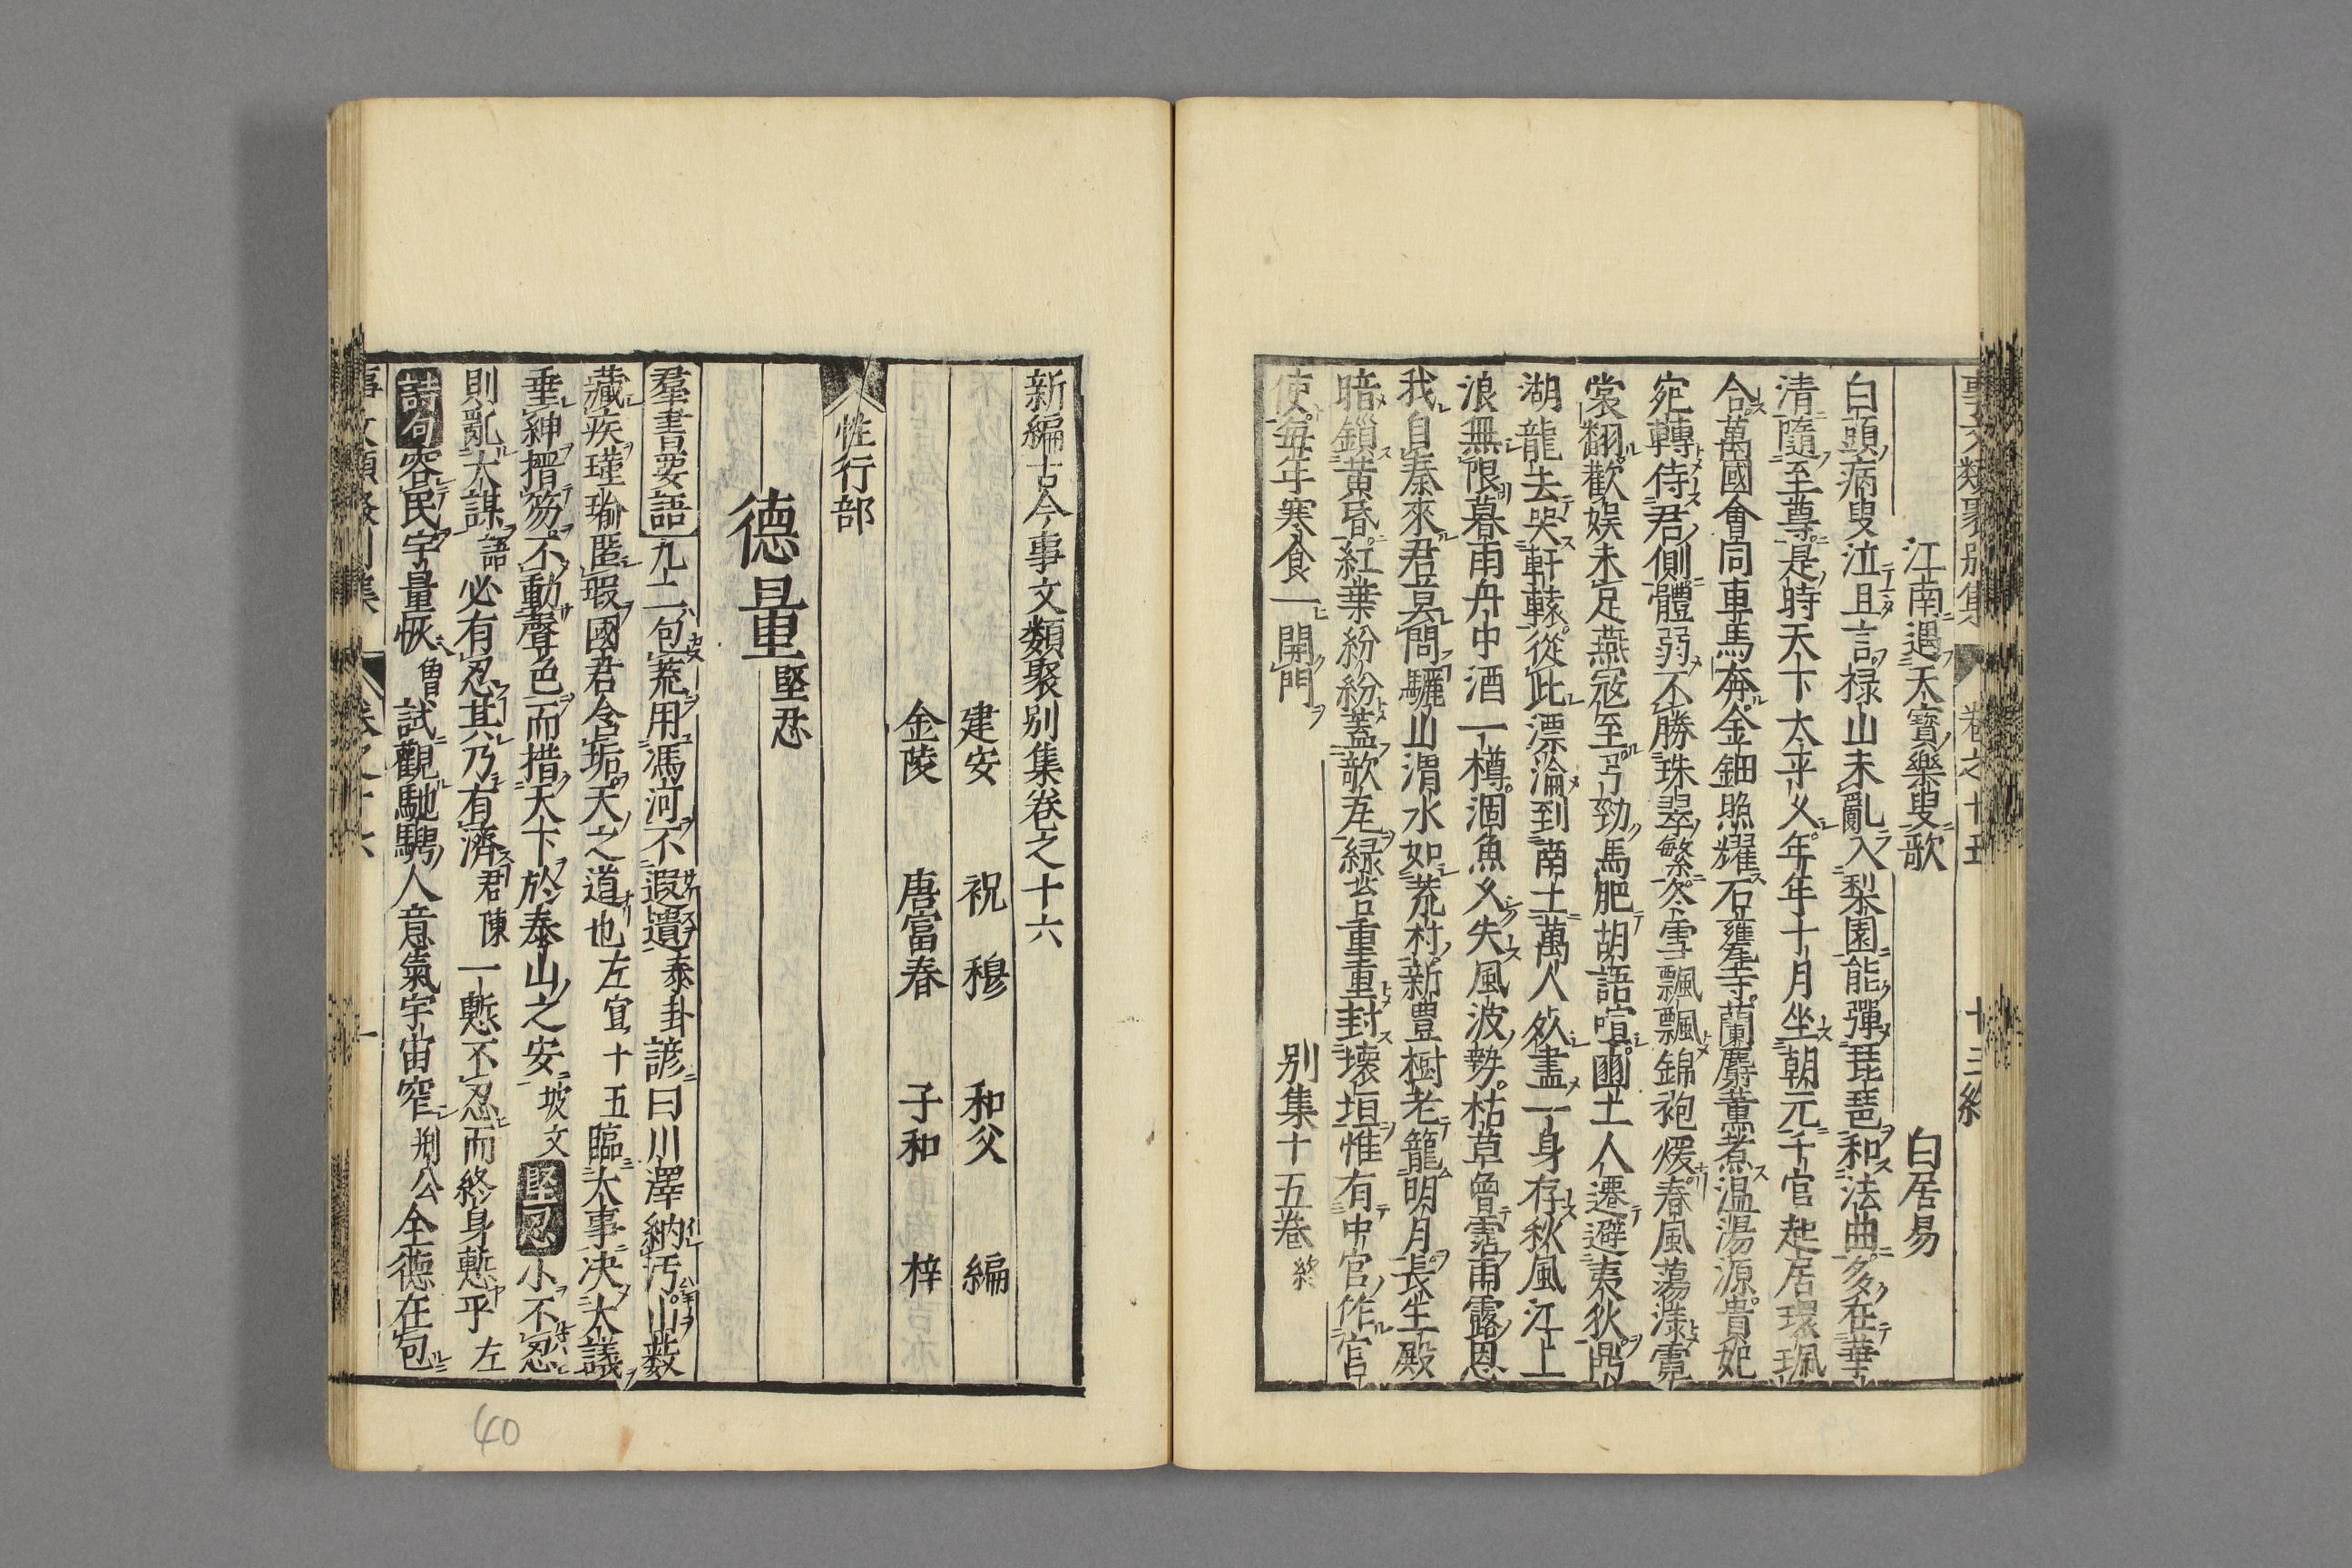 江南遇天寶樂叟歌　白居易
白頭病叟泣且言禄山未亂入梨園能彈琵琶和法曲多在華
清隨至尊是時天下太平乆年年十月坐朝元千官起居環珮
合萬國會同車馬奔金鈿照耀石甕寺蘭麝薫煮温湯源貴妃
宛轉侍君側體弱不勝珠翠繁冬雪飄飖錦袍煖春風蕩漾霓
裳翻歡娯未足燕寇至弓勁馬肥胡語喧豳土人遷避夷狄鼎
湖龍去哭軒轅從此漂淪到南土萬人死盡一身存秋風江上
浪無限暮雨舟中酒一樽涸魚乆失風波勢枯草曾霑雨露恩
我自秦來君莫問驪山渭水如荒村新豊樹老籠明月長生殿
暗鎻黄昏紅葉紛紛蓋欹瓦緑苔重重封壊垣惟有中官作宫
使每年寒食一開門
别集十五卷終
新編古今事文類聚别集卷之十六
建安　祝穆　和父　編
金陵　唐富春　子和　梓
性行部
德量 堅忍
羣書要語 九二包荒用馮河不遐遺泰卦諺曰川澤納汚山薮
藏疾瑾瑜匿瑕國君含垢天之道也左宣十五臨大事决大議
垂紳搢笏不動聲色而措天下於泰山之安坡文 堅忍 小不忍
則亂大謀語必有忍其乃有濟君陳一慙不忍而終身慙乎左
詩句 容民宇量恢曾試觀馳騁人意氣宇宙窄荆公全德在包
事文類聚别集　卷之十六　一